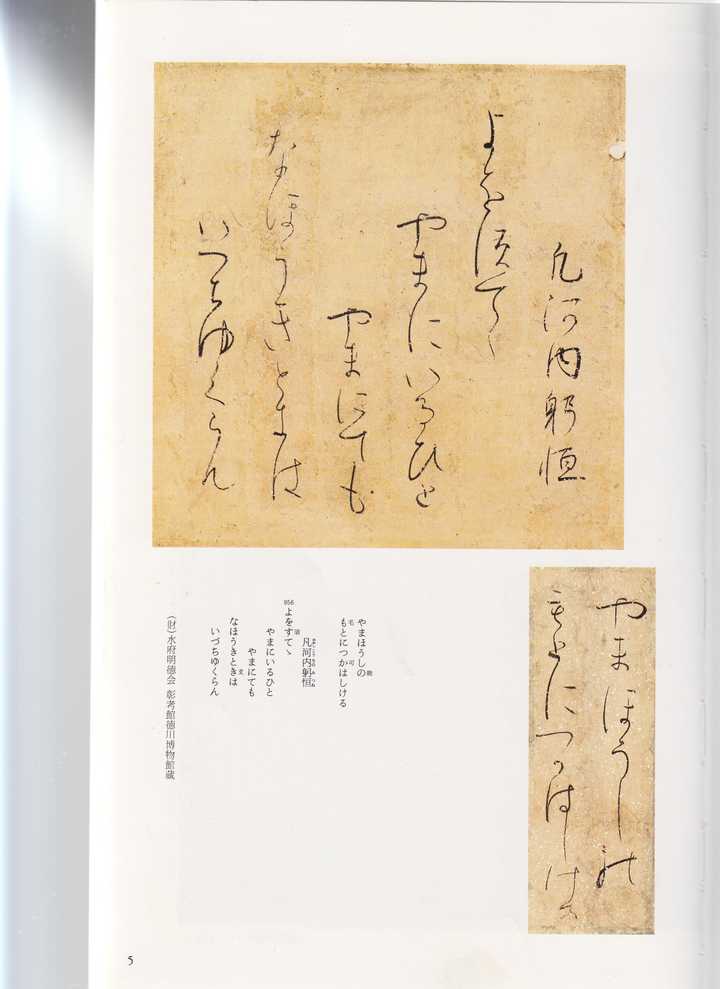 凡河内躬恒
よをすてゝ
やまにいるひと
やまにても
なほうきときは
いつちゆくらん
やまほうしの
もとにつかはしける
やまほうしの
もとにつかはしける
凡河内躬恒
956 よをすてゝ
やまにいるひと
やまにても
なほうきときは
いづちゆくらん
(財)水府明徳会 彰考館徳川博物館蔵
5